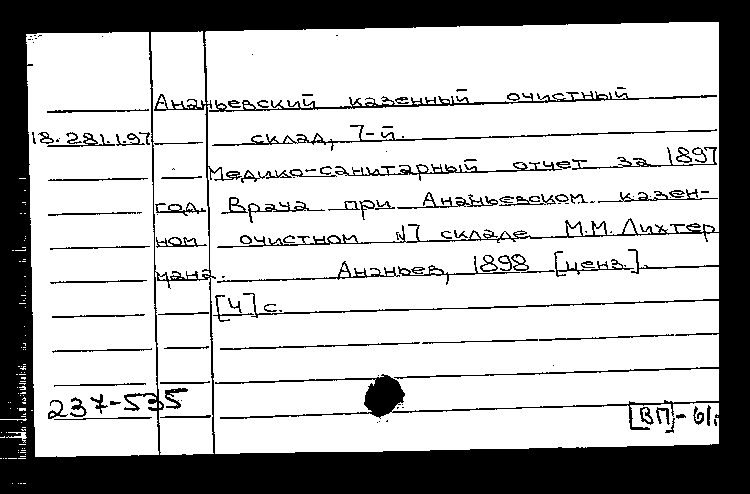 Ананьевский казенный очистный
18.281.1.97 склад, 7-й.
Медико-санитарный отчет за 1897
год. Врача при Ананьевском казен-
ном очистном №7 складе М.М. Лихтер
мана. Ананьев, 1898 [ценз.].
[4] с.
237-535
[ВП]-61.